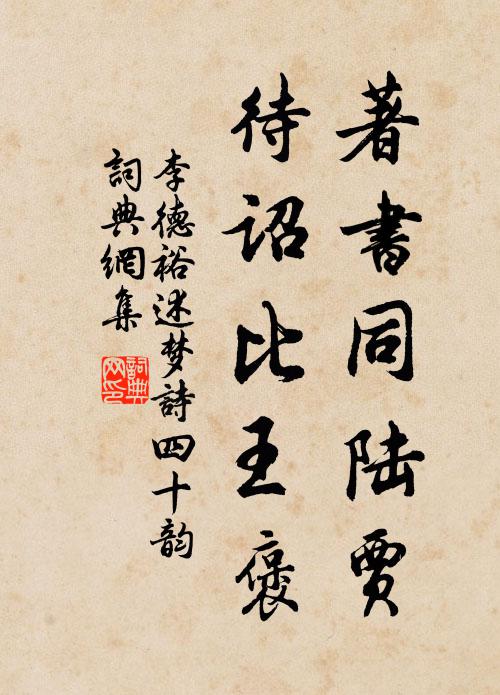 著書同陆賈
待詔比王褒
李德裕述梦詩四十韵
詞典網集
詞典网印